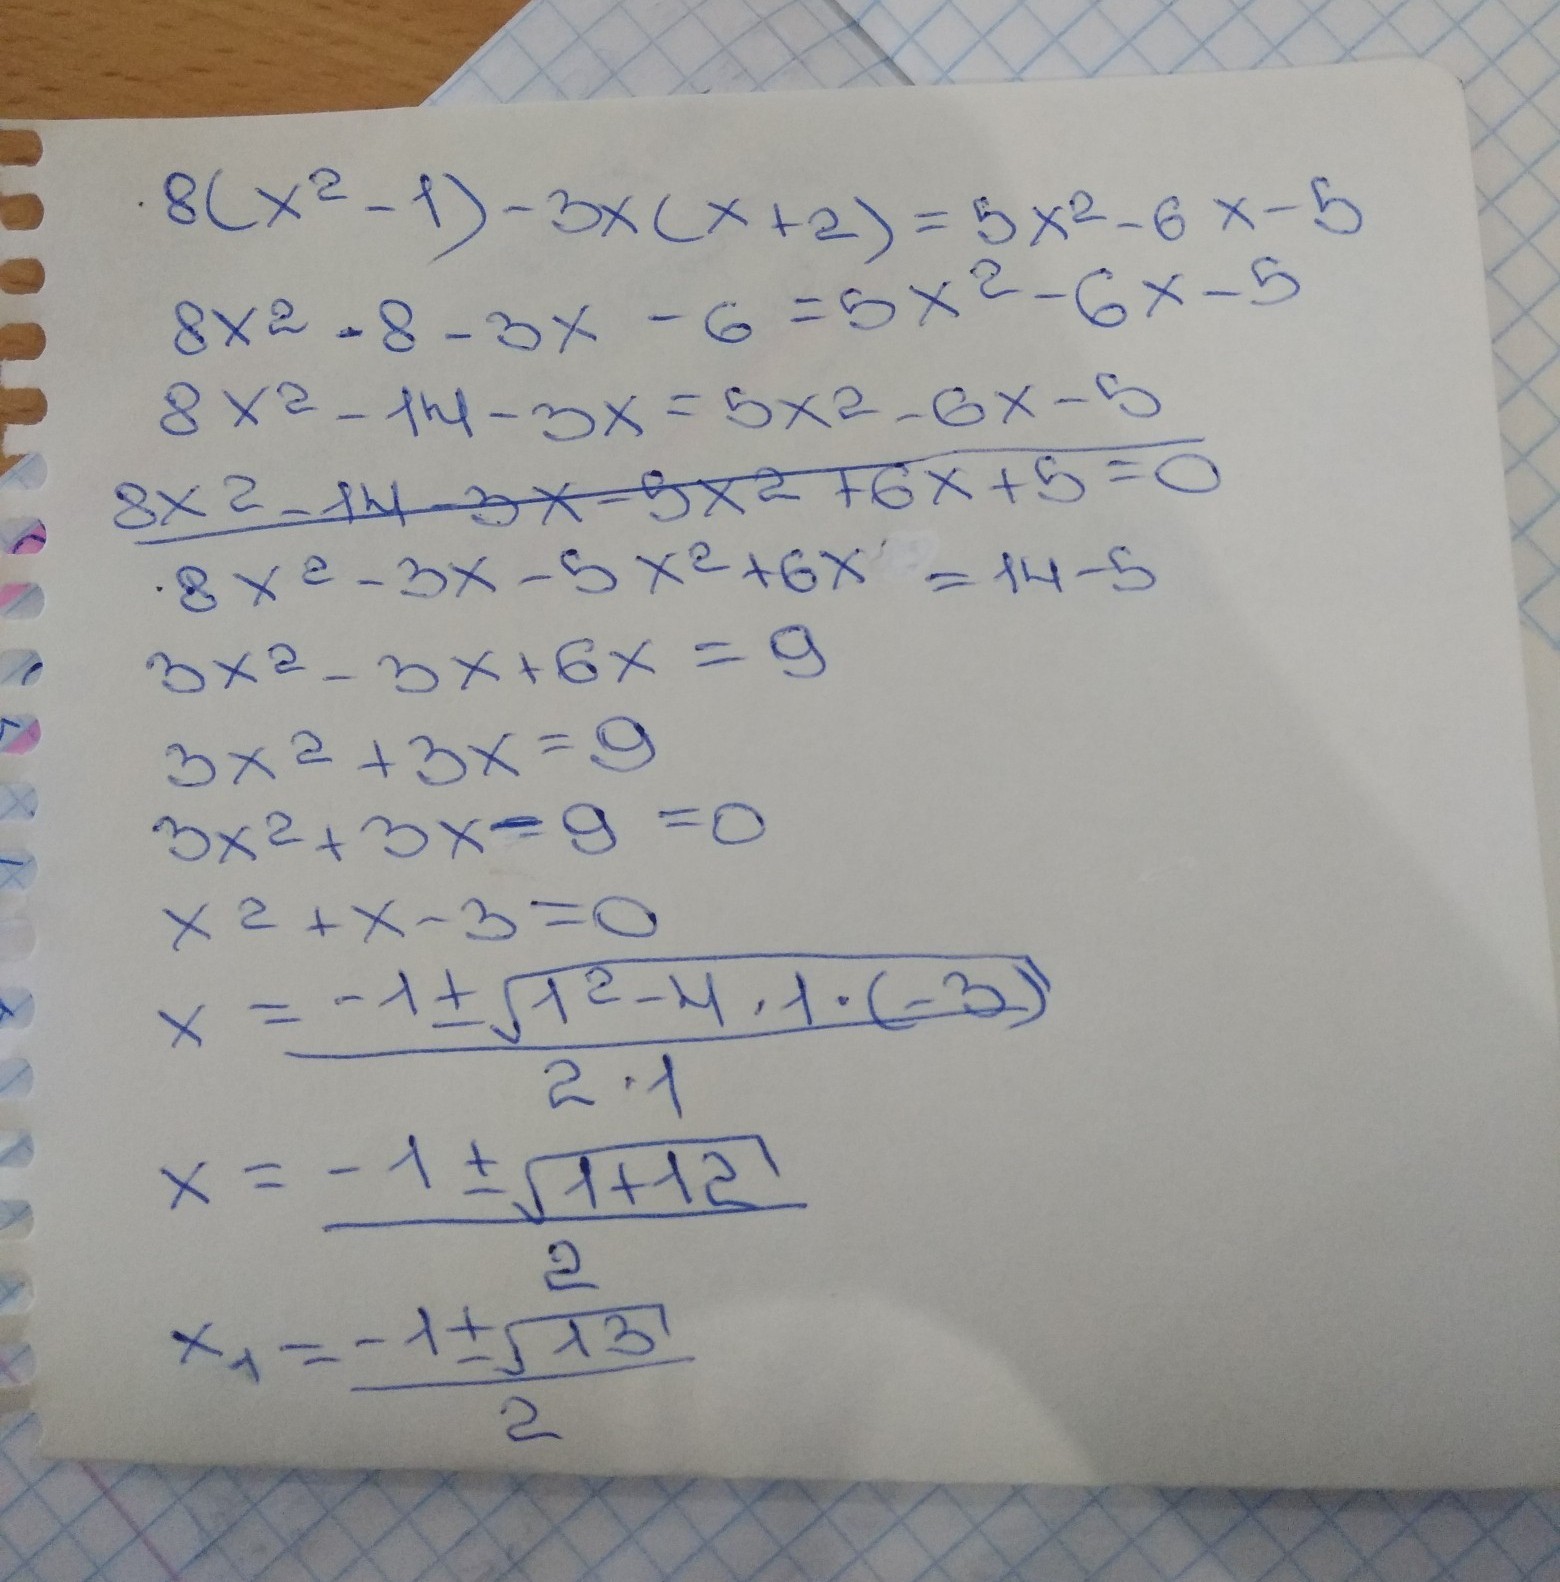 8(x² - 1) - 3x(x + 2) = 5x² - 6x - 5
8x² - 8 - 3x - 6 = 5x² - 6x - 5
8x² - 14 - 3x = 5x² - 6x - 5
8x² - 14 - 3x - 5x² + 6x + 5 = 0
8x² - 3x - 5x² + 6x = 14 - 5
3x² - 3x + 6x = 9
3x² + 3x = 9
3x² + 3x - 9 = 0
x² + x - 3 = 0
x = (-1 ± √(1² - 4 · 1 · (-3))) / (2 · 1)
x = (-1 ± √(1 + 12)) / 2
x₁ = (-1 ± √13) / 2